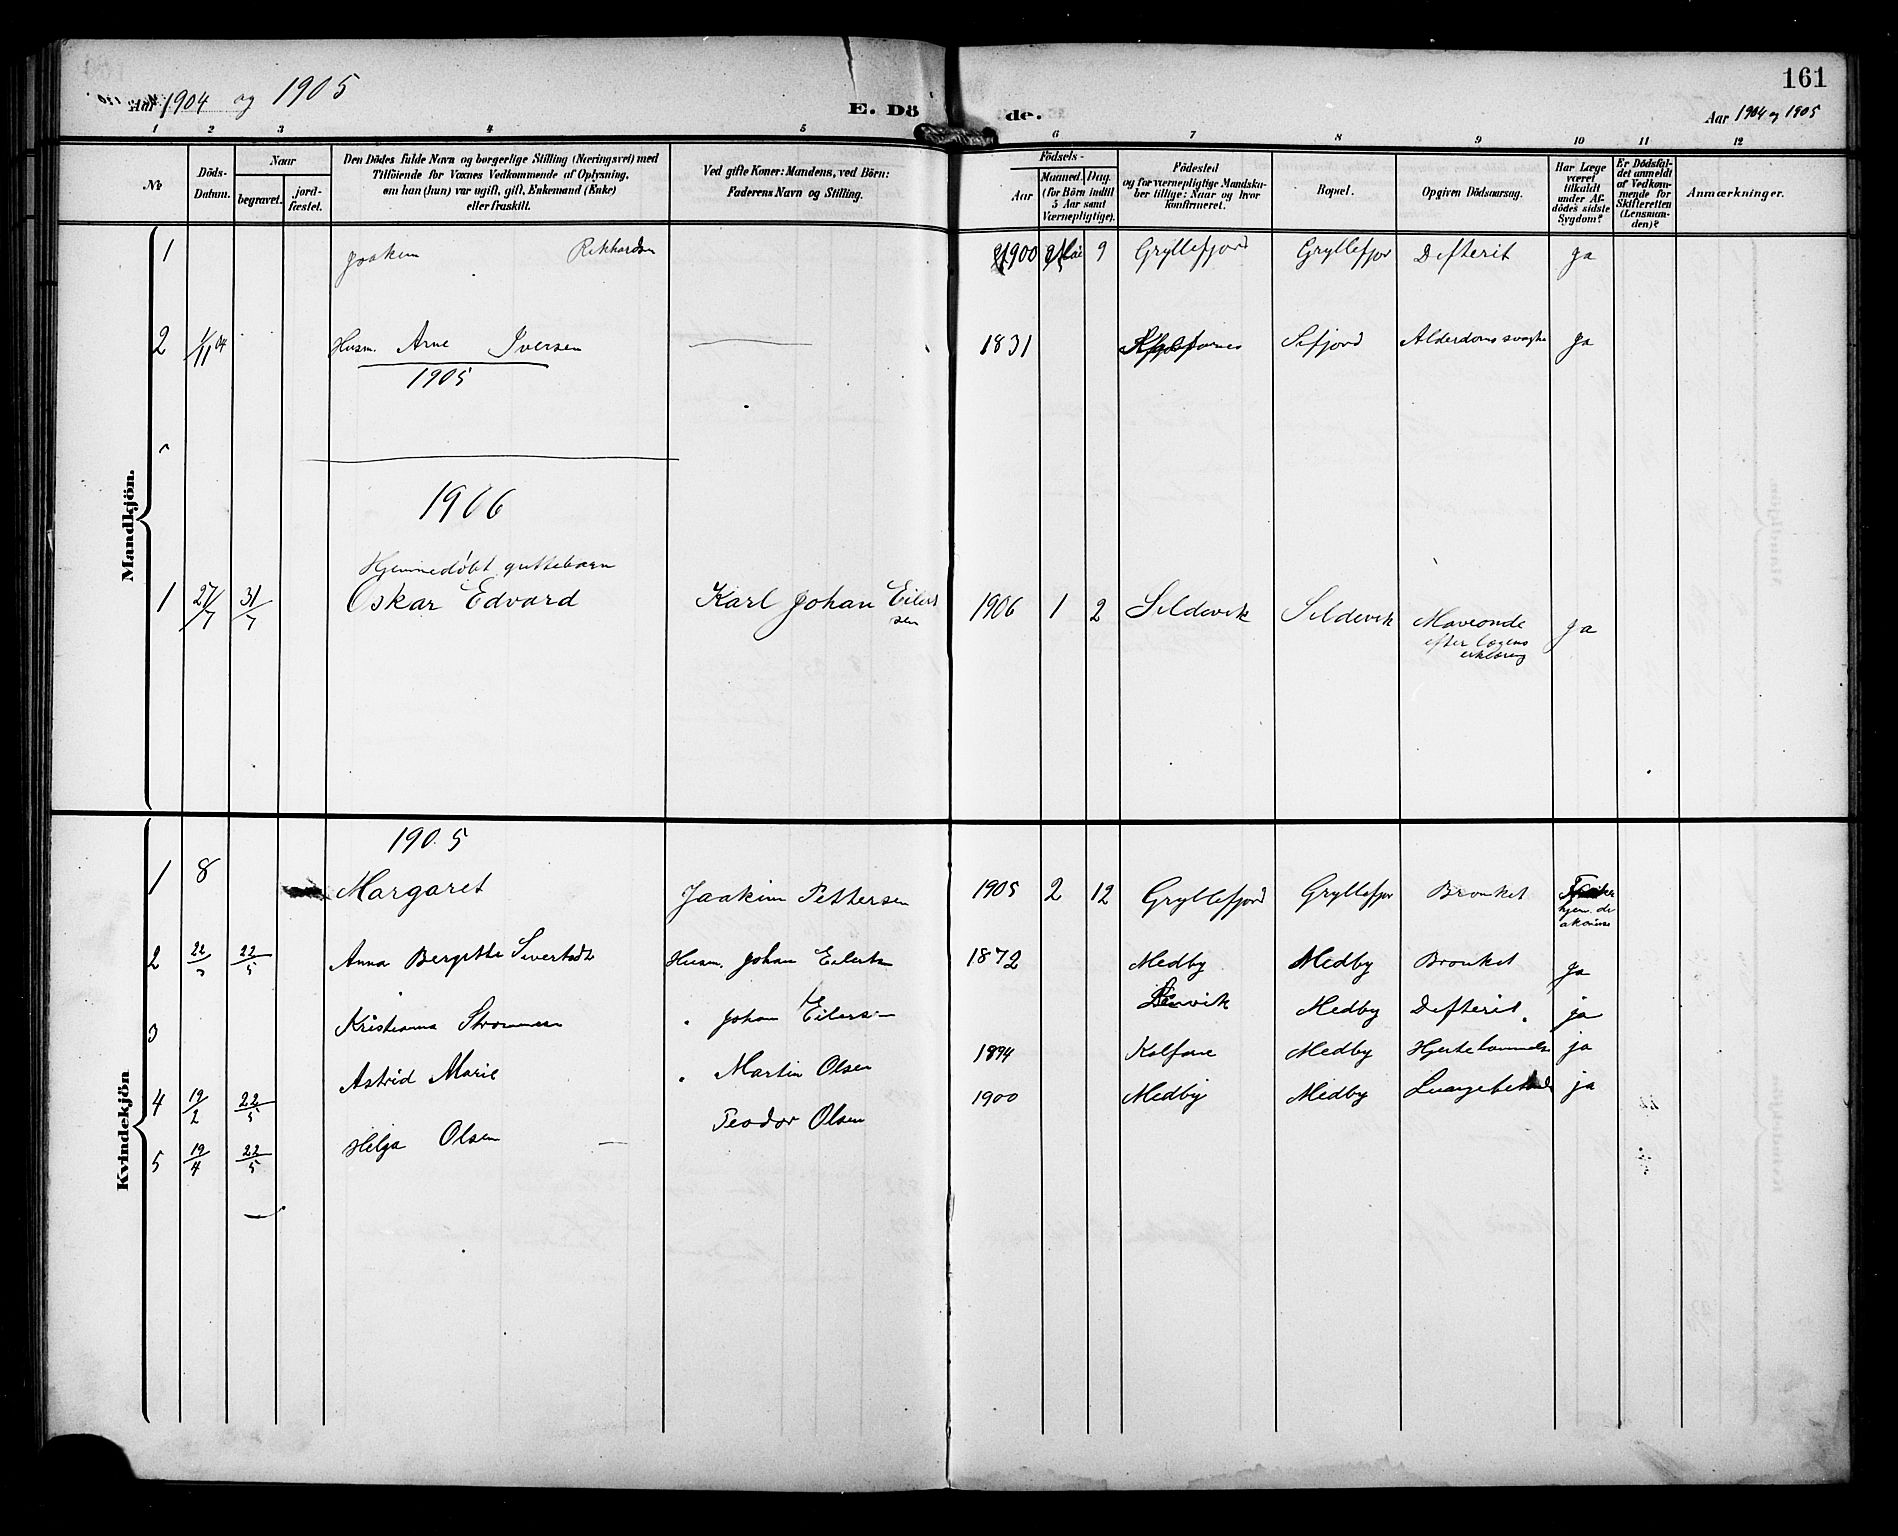 Aar 1904 og 1905
E. Dö
de.
161
Aar 1904 og 1905
1 2 3 4 5 6 7 8 9 10 11 12
No
Döds-Datum.
Naar
begravet.
jord-fæstet.
Den Dödes fulde Navn og borgerlige Stilling (Næringsvei) med
Tilföiende for Voxnes Vedkommende af Oplysning,
om han (hun) var ugift, gift, Enkemand (Enke)
eller fraskilt.
Ved gifte Koner: Mandens, ved Börn:
Faderens Navn og Stilling.
Födsels-
Aar
Maaned. Dag.
(for Börn indtil
5 Aar samt
Værnepligtige).
Födested
og for værnepligtige Mandskaber tillige: Naar og hvor
konfirmeret.
Bopæl.
Opgiven Dödsaarsag.
Har Læge
været
tilkaldt
under Afdödes sidste
Sygdom?
Er Dödsfaldet anmeldt
af Vedkommende for
Skifteretten
(Lensmanden)?
Anmærkninger.
Mandkjön.
1 Joakim Rikhardsen 1900 Mai 9 Gryllefjord Gryllefjor Defterit ja
2 1/11 04 Husm. Arne Iversen 1831 Sifjord Alderdoms svaghe ja
1905
1906
Hjemmedøbt guttebarn
1 27/7 31/7 Oskar Edvard Karl Johan Eilertsen 1906 1 2 Sildevik Sildevik Maveonde ja
efter lægens
erklæring
Kvindekjön
1905
1 8 Margaret Joakim Pettersen 1905 2 12 Gryllefjord Gryllefjor Bronket
2 22/5 Anna Bergitte Husm. Johan Eilerts 1872 Medby Medby Bronket ja
3 Kristianna Johan Eilersen Lenvik Medby Defterit. ja
Astrid Marie " Martin Olsen 1894 Medby ja
4 19/2 22/5 Teodor Olsen 1900 Medby Medby ja
5 19/4 22/5 Helga Olsen